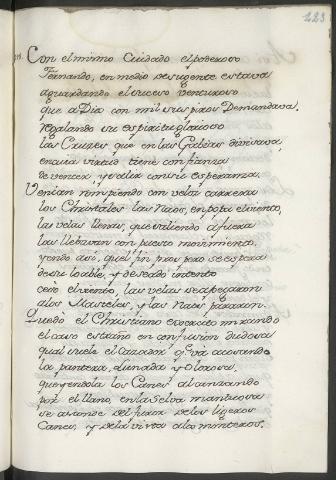 223
Con el mismo Cuidado el poderoso
Fernando, en medio de su gente estava
aguardando el suceso venturoso
que a Dios con mil suspiros Demandava,
regalando su espiritu glorioso
las Cruzes que en las Gabias divisava,
en cuia virtud tiene confianza
de vencer, y salir con su esperanza.
Venian rompiendo con veloz carrera
los Christales las Naos, en popa el viento,
las velas llenas, que saliendo a fuera
las llebavan con presto movimiento,
yendo asi, quel fin pros pero se espera
de su loable, y deseado intento
ceso el viento, las velas se apegaron
a los Masteles, y las Naos pararon.
Quedó el Christiano exercito mirando
el caso estraño en confusion dudosa
qual suele el cazador q.e va acosando
la pantera, alunada y
queyendola los Canes alcanzando
por el llano, en la selva
se asconde del furor de los ligeros
Canes, y de la vista a los monteros.